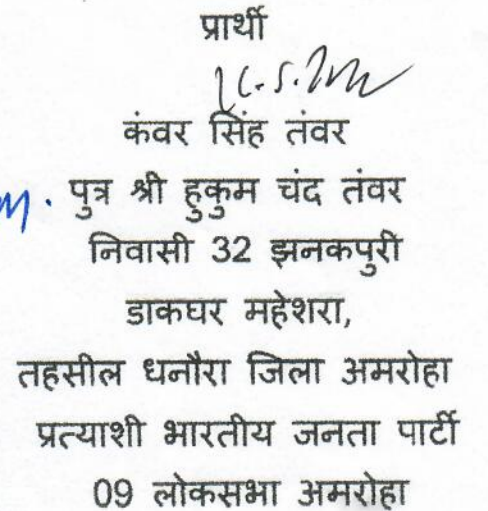 प्रार्थी
कंवर सिंह तंवर
पुत्र श्री हुकुम चंद तंवर
निवासी 32 झनकपुरी
डाकघर महेशरा,
तहसील धनौरा जिला अमरोहा
प्रत्याशी भारतीय जनता पार्टी
09 लोकसभा अमरोहा